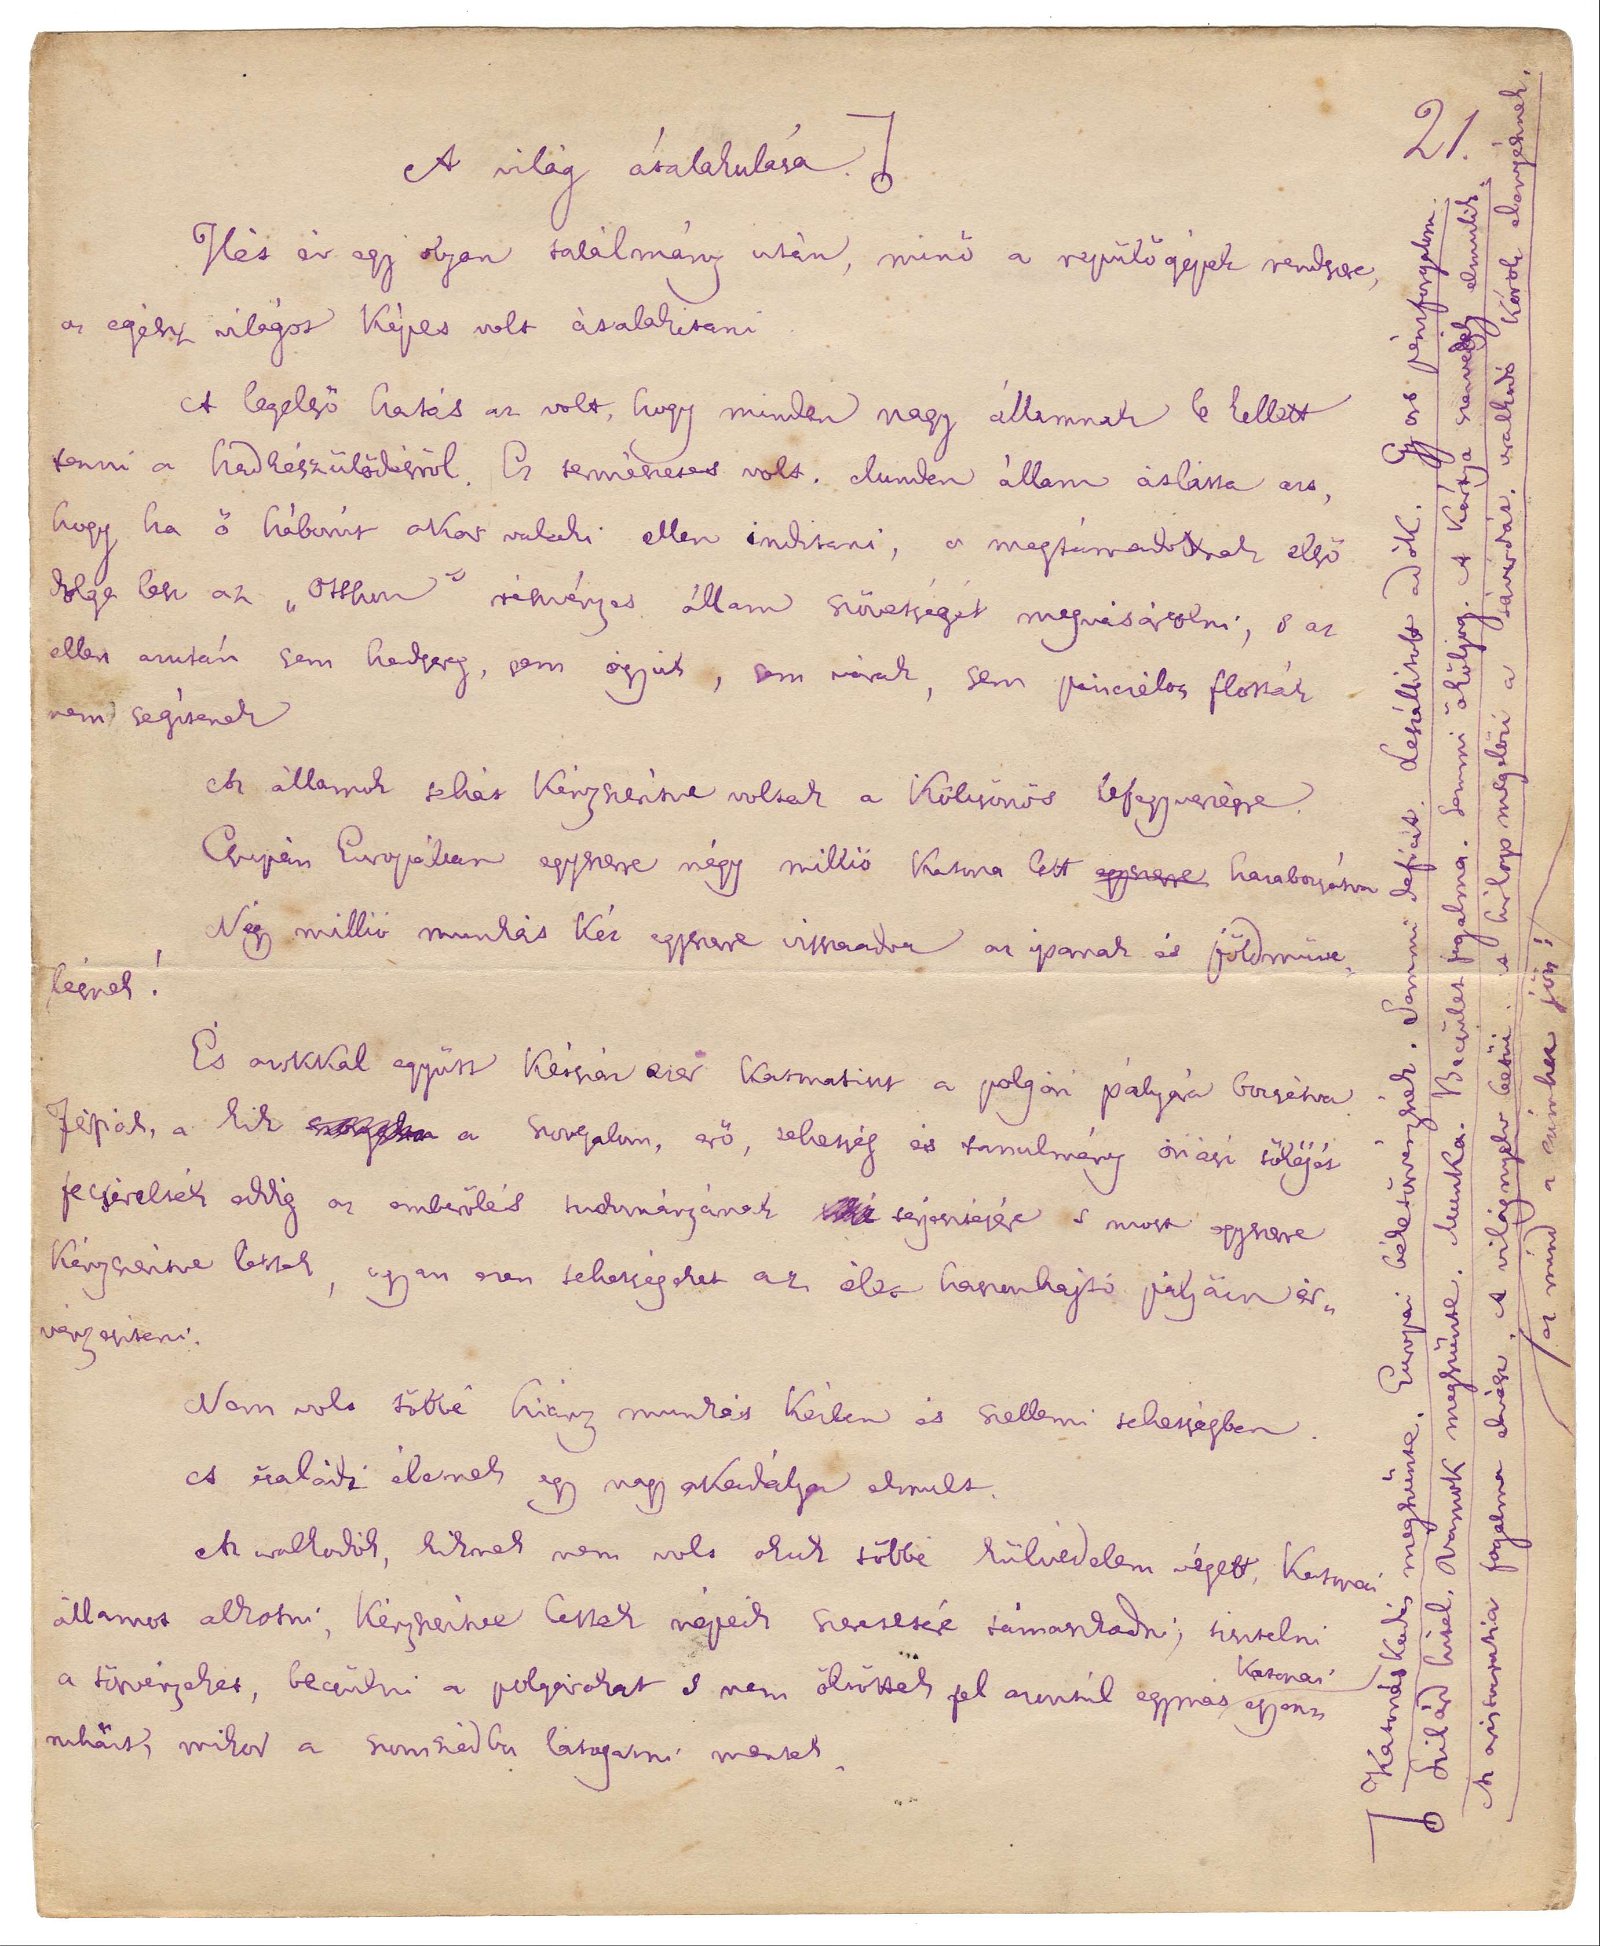 21.
A világ átalakulása.
Hét év egy olyan találmány után, minő a repülőgépek rendszere,
az egész világot képes volt átalakitani
A legelső hatás az volt, hogy minden nagy államnak le kellett
tenni a hadkészülődésről. Ez természetes volt. Minden állam átlátta azt,
hogy ha ő háborút akar valaki ellen inditani, a megtámadottnak első
dolga lesz az „Otthon" részvényes állam szövetségét megvásárolni, s az
ellen azután sem hadsereg, sem ágyúk, sem várak, sem páncélos flották
nem segitenek
Az államok tehát kényszeritve voltak a kölcsönös lefegyverzésre.
Csupán Europában egyszerre négy millió katona lett egyszerre hazabocsátva
Négy millió munkás kéz egyszerre visszaadva az iparnak és földmüve„
lésnek!
És azokkal együtt kétszáz ezer katonatiszt a polgári pályára bocsátva.
Férfiak, a kik a szorgalom, erő, tehetség és tanulmány óriási tőkéjét
fecsérelték eddig az emberölés tudományának terjesztésére s most egyszerre
kényszeritve lettek, ugyan ezen tehetségeket az élet haszonhajtó pályáin ér„
vényesiteni.
Nem volt többé hiány munkás kézben és szellemi tehetségben.
A családi életnek egy nagy akadálya elmult.
Az uralkodók, kiknek nem volt okuk többé külvédelem végett, katonai
államot alkotni, kényszeritve lettek népeik szeretetére támaszkodni; tisztelni
a törvényeket, becsülni a polgárokat s nem öltöttek fel azontúl egymás katonai egyen„
ruháit, mikor a szomszédba látogatni mentek.
Katonáskodás megszünte. Europai béketörvényszék. Semmi deficit. Leszállitott adók. Gyors pénzforgalom.
Szilárd hitel. Vámok megszünte. Munka. Becsület fogalma. Semmi ököljog. A kártya szenvedély elmulik.
Az aristokratia fogalma elvész. A világnyelv kérdés. s hirlap megelőzi a távirdát. uralkodó körök elenyésznek.
az mind a czimhez jön!